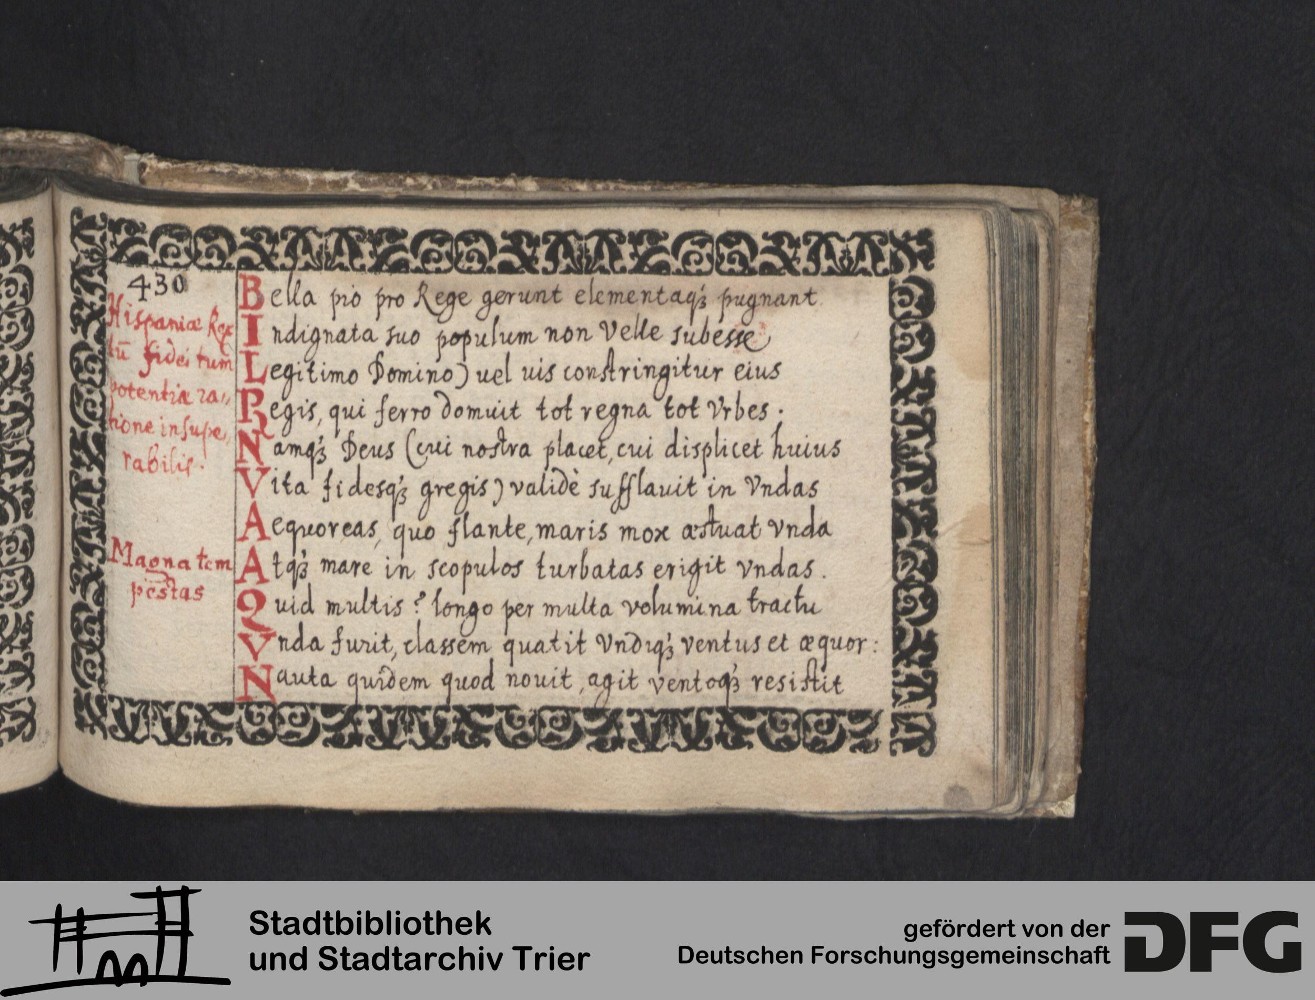 430
Hispaniæ Rex
tū fidei tum
potentiæ ra,,
tione insupe,,
rabilis.
Magna tem
pestas
Bella pio pro Rege gerunt elementaqꝫ pugnant
Indignata suo populum non velle subesse
Legitimo Domino) uel uis constringitur eius
Regis, qui ferro domuit tot regna tot Vrbes.
Namqꝫ Deus (cui nostra placet, cui displicet huius
Vita fidesqꝫ gregis) validè sufflauit in Vndas
Aequoreas, quo flante, maris mox æstuat vnda
Atqꝫ mare in scopulos turbatas erigit vndas.
Quid multis? longo per multa volumina tractu
Vnda furit, classem quatit Vndiqꝫ ventus et æquor:
Nauta quidem quod nouit, agit ventoqꝫ resistit
Stadtbibliothek
und Stadtarchiv Trier
gefördert von der
Deutschen Forschungsgemeinschaft
DFG